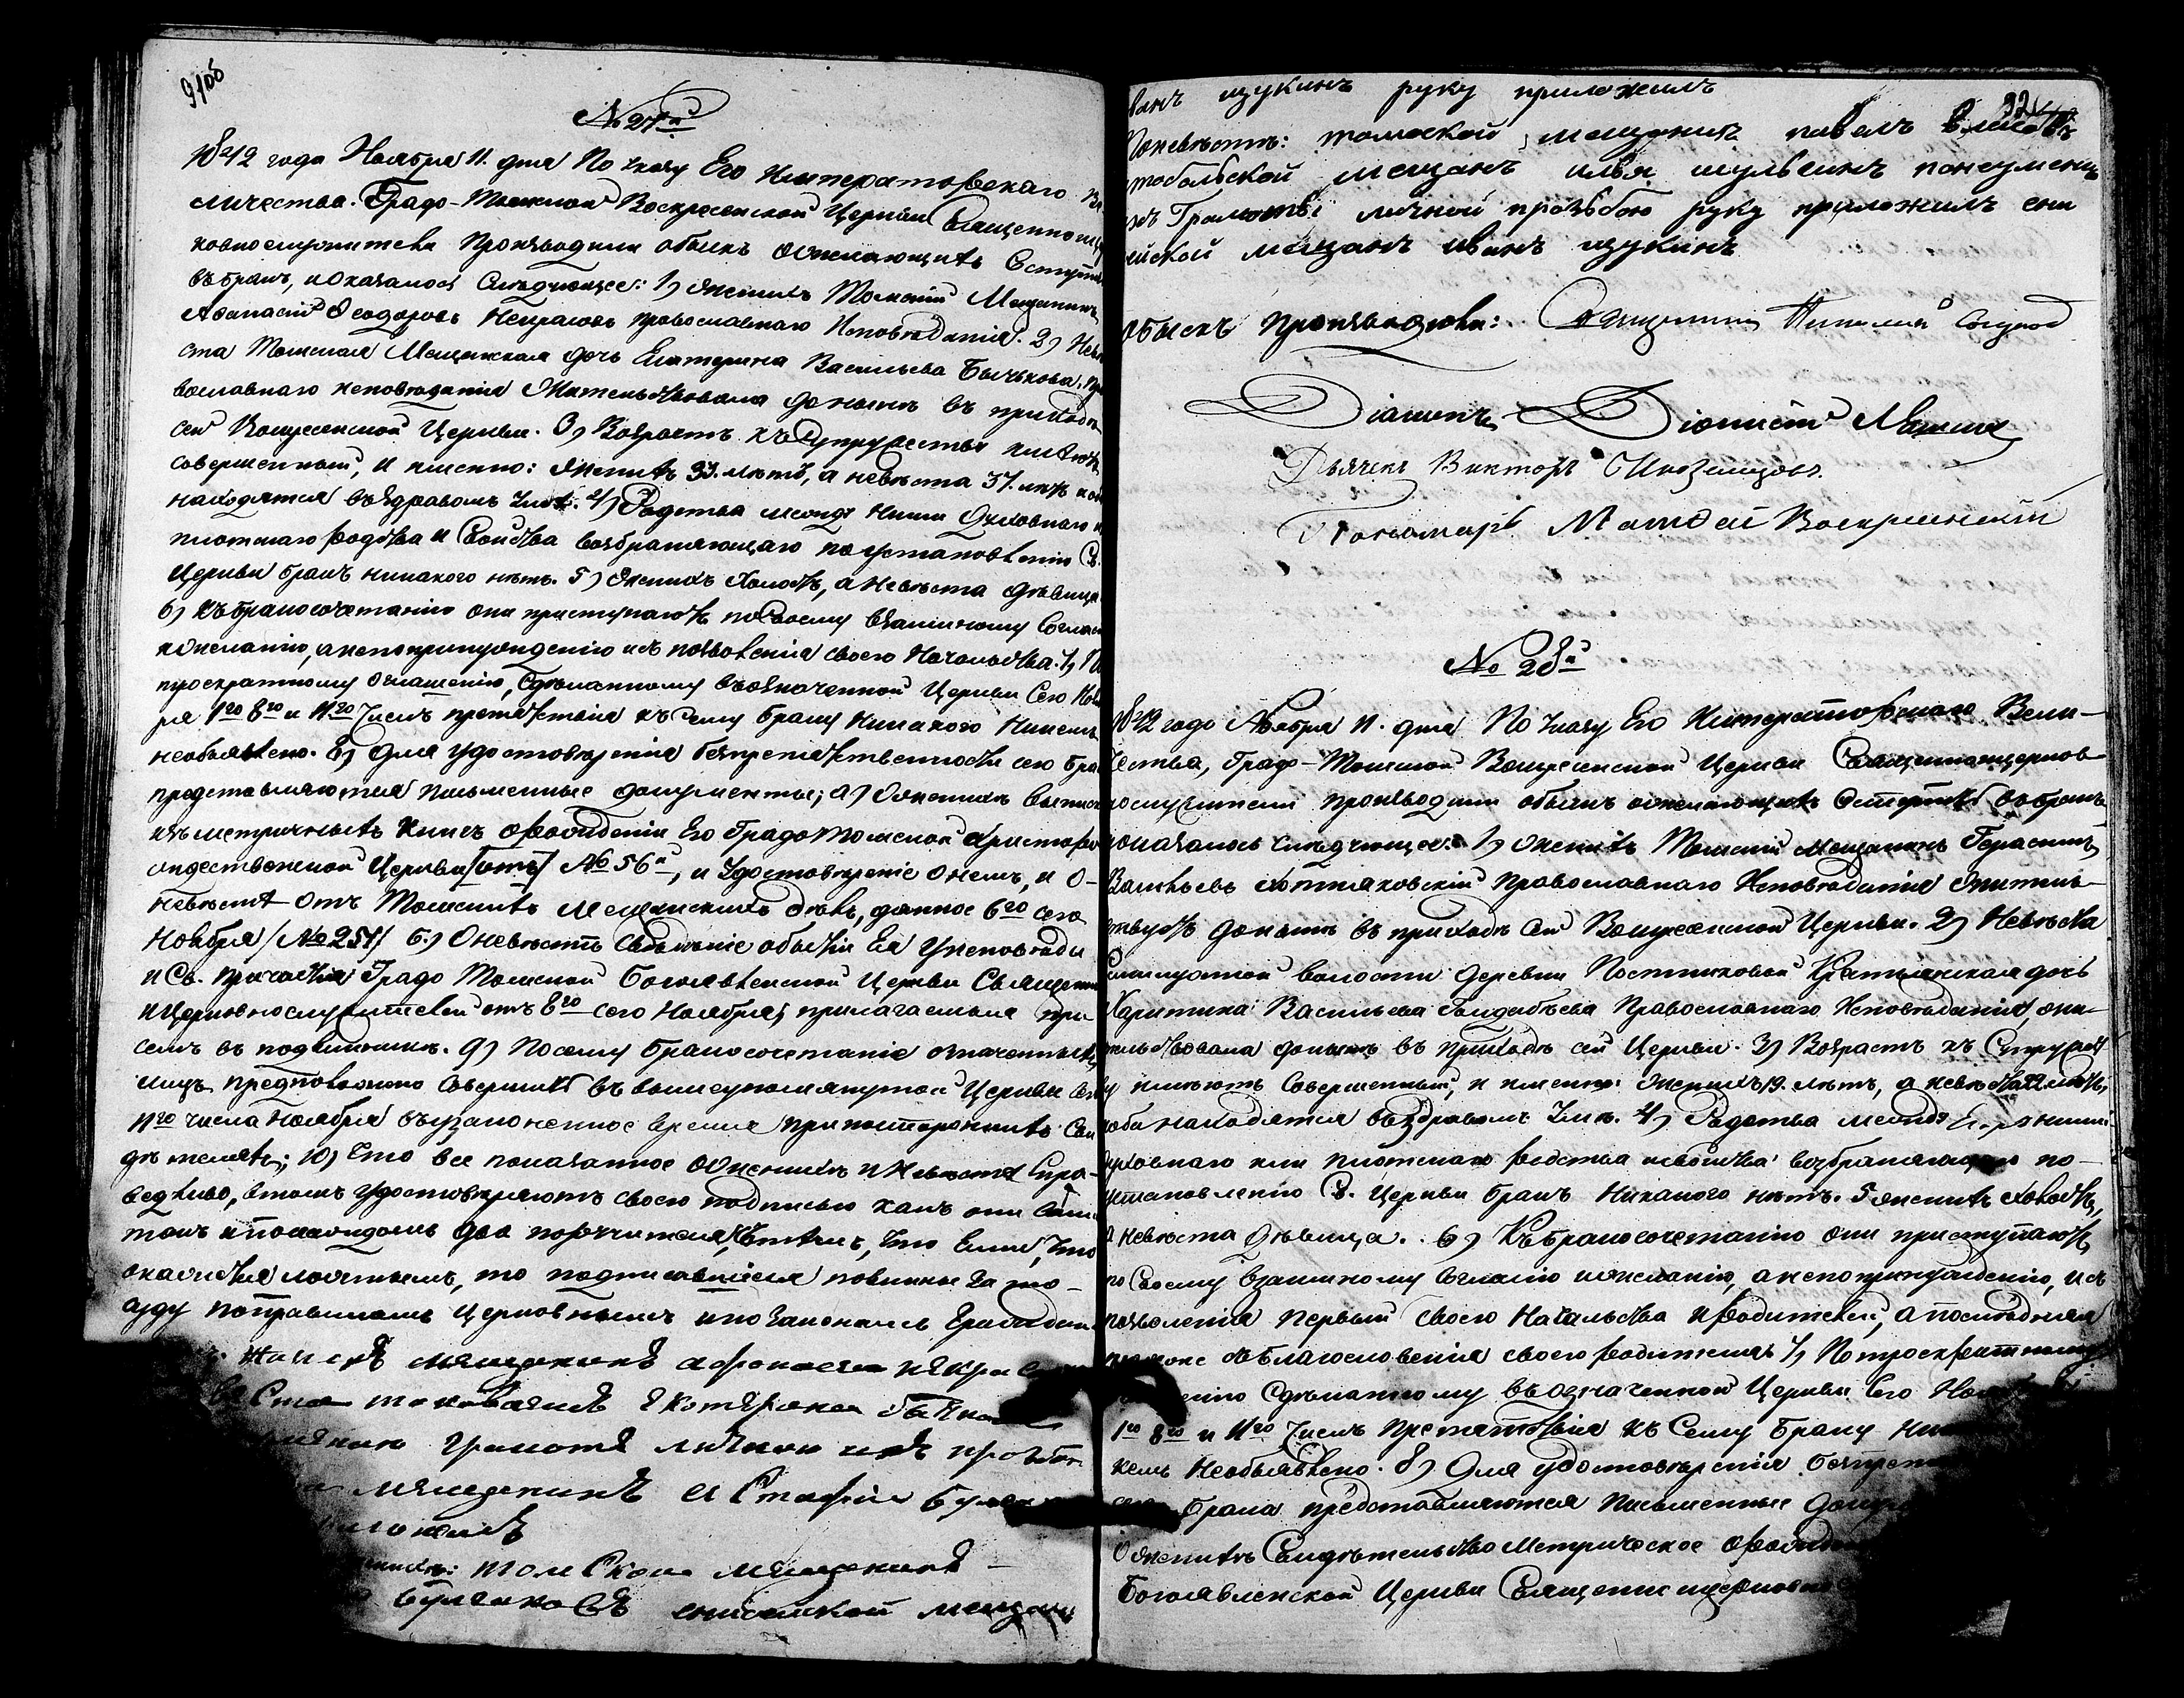 91об
№ 27й
1842 года Ноября 11. дня По указу Его Императорскаго Ве
личества. Градо-Томской Воскресенской Церкви Священноцер
ковнослужители производили обыскъ о желающихъ вступить
въ бракъ, и оказалось следующее: 1) Женихъ Томский Мещанинъ
Афанасий Феодоровъ Некрасовъ православнаго исповедания. 2) Неве
ста Томская Мещанская дочь Екатерина Васильева Бычькова, пра
вославнаго исповедания жительствовала доныне въ приходе
сей Воскресенской Церкви. 3) Возрастъ къ супружеству имеютъ
совершенный, и именно: Женихъ 33. летъ, а невеста 37. летъ и оба
находятся въ здравомъ уме. 4) Родства между ними духовнаго и
плотскаго родства и свойства возбраняющаго по установлению Св.
Церкви бракъ никакого нетъ. 5) Женихъ холостъ, а невеста девица
6) Къ бракосочетанию они приступаютъ по своему взаимному соглас
и желанию, а не по принуждению и съ позволения своего Начальства. 7) По
троекратному оглашению, сделанному въ означенной Церкви сего Нояб
ря 1го 8го и 11го числъ препятствия къ сему браку никакого никемъ
необъявлено. 8) Для удостоверения безпрепятственности сего брака
представляются письменные документы; а) о женихе выписка
изъ метричныхъ книгъ о рождении его Градо Томской Христоро
ждественской Церкви № 56й, и удостоверение о немъ, и о
невесте отъ Томскихъ мещанскихъ делъ, данное 6го сего
Ноября /№ 251/ б.) о невесте сведение о бытии ея у исповеди
и Св. причастия Градо Томской Богоявленской Церкви Священно
и Церковнослужителей отъ 8го сего Ноября, прилагаемыя при
семъ въ подлиннике. 9) Посему бракосочетание означенныхъ
лицъ предположено совершить въ вышеупомянутой Церкви сего
11го числа Ноября въ узаконенное время при постороннихъ сви
детеляхъ; 10) Что все показанное о женихе и невесте спра-
ведливо, въ томъ удостоверяютъ своею подписью какъ они сами
такъ и по каждомъ два поручителя, съ темъ, что если, что
окажется ложнымъ, то подписавшиеся повинны за то
суду по правиламъ Церковнымъ и по законамъ гражданс
мещенинъ афонасеи некрасо
екотерина
грамоте личнои ихъ прозбо
мещенинъ
томской мещенинъ
енисейской мещанинъ
92
ванъ щукинъ руку приложилъ
По невесте: томской мещанинъ павелъ
тобольской мещанъ илья шульгинъ понеумени
грамоты личной прозьбою руку приложилъ ени
сейской мещанъ иванъ щукинъ
обыскъ производили: Священникъ
Діаконъ Діонисій
Дьячекъ Викторъ Иноземцовъ
Пономарь Матфей Воскресенский
№ 28й
1842 года Ноября 11. дня По указу Его Императорскаго Вели-
чества, Градо-Томской Воскресенской Церкви Священноцерков
нослужители производили обыскъ о желающихъ вступить въ бракъ
и оказалось следующее: 1) Женихъ Томский мещанинъ Герасимъ
Васильевъ православнаго исповедания житель
ствуетъ доныне въ приходе сей Воскресенской Церкви. 2) Невеста
волости деревни Постниковой Крестьянская дочь
Харитина Васильева Православнаго исповедания, жи-
тельствовала доныне въ приходе сей Церкви. 3) Возрастъ къ супружест
ву имеютъ совершенный, и именно: женихъ 19. летъ, а невеста 22 летъ,
и оба находятся въ здравомъ уме. 4) Родства между ними
духовнаго или плотскаго родства и свойства возбраняющаго по-
установлению Св. Церкви бракъ никакого нетъ. 5 женихъ холостъ,
а невеста девица. 6) Къ бракосочетанию они приступаютъ
по своему взаимному согласию и желанию, а не по принуждению, и съ
позволения первый своего Начальства и родителей, а последняя
съ благословения своего родителя 7) По троекратному
сделанному въ означенной Церкви сего Ноя
1го 8го и 11го числъ препятствия къ сему браку ник
кемъ необъявлено. 8) Для удостоверения безпрепя
сего брака представляются письменные докуме
о женихе свидетельство метрическое о рожден
Богоявленской Церкви Священно и церковно